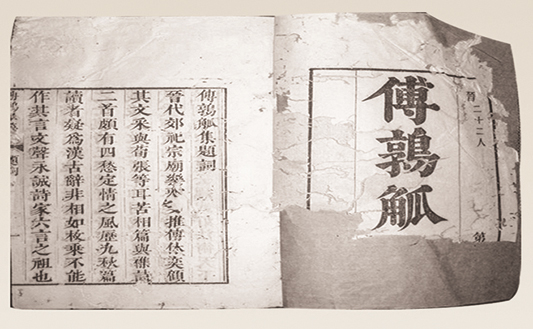 二十二人
傅鶉觚
第
傅鶉觚集題詞
晉代郊祀宗廟樂推傅休奕顧
其文采與荀張等耳苦相篇與雜詩
二首頗有四愁定情之風歷九秋篇
讀者疑爲漢古辭非相如枚乘不能
作其言文聲永誠詩家六言之祖也